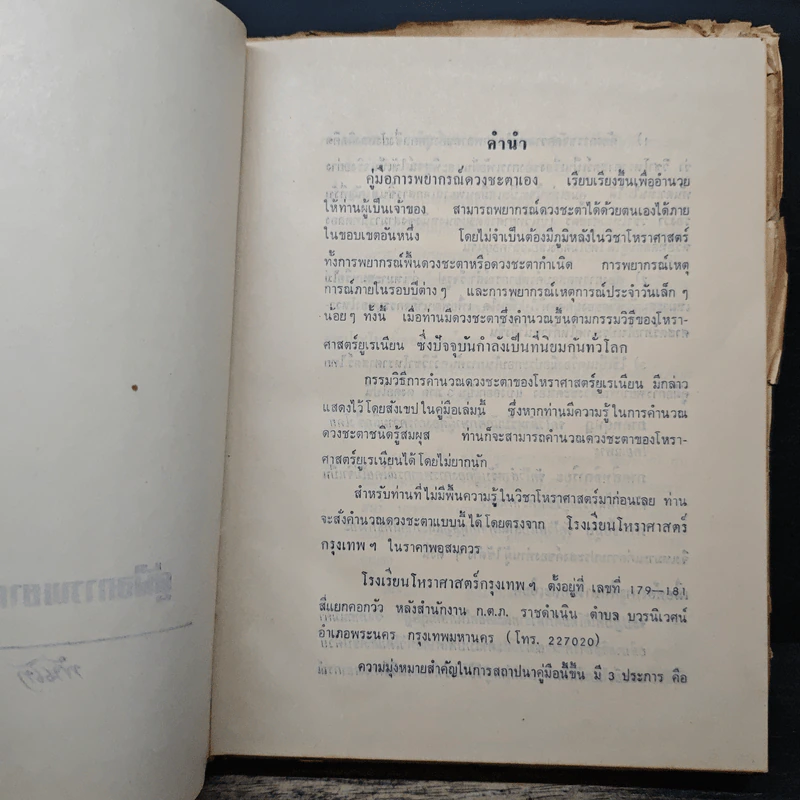 คำนำ
คู่มือการพยากรณ์ดวงชะตาเอง เรียบเรียงขึ้นเพื่ออำนวย
ให้ท่านผู้เป็นเจ้าของ สามารถพยากรณ์ดวงชะตาได้ด้วยตนเองได้ภาย
ในขอบเขตอันหนึ่ง โดยไม่จำเป็นต้องมีภูมิหลังในวิชาโหราศาสตร์
ทั้งการพยากรณ์พื้นดวงชะตาหรือดวงชะตากำเนิด การพยากรณ์เหตุ
การณ์ภายในรอบปีต่าง ๆ และการพยากรณ์เหตุการณ์ประจำวันเล็ก ๆ
น้อย ๆ ทั้งนี้ เมื่อท่านมีดวงชะตาซึ่งคำนวณขึ้นตามกรรมวิธีของโหรา-
ศาสตร์ยูเรเนียน ซึ่งปัจจุบันกำลังเป็นที่นิยมกันทั่วโลก
กรรมวิธีการคำนวณดวงชะตาของโหราศาสตร์ยูเรเนียน มีกล่าว
แสดงไว้โดยสังเขปในคู่มือเล่มนี้ ซึ่งหากท่านมีความรู้ในการคำนวณ
ดวงชะตาชนิดรู้สมผุส ท่านก็จะสามารถคำนวณดวงชะตาของโหรา-
ศาสตร์ยูเรเนียนได้โดยไม่ยากนัก
สำหรับท่านที่ไม่มีพื้นความรู้ในวิชาโหราศาสตร์มาก่อนเลย ท่าน
จะสั่งคำนวณดวงชะตาแบบนี้ได้โดยตรงจาก โรงเรียนโหราศาสตร์
กรุงเทพ ฯ ในราคาพอสมควร
โรงเรียนโหราศาสตร์กรุงเทพ ฯ ตั้งอยู่ที่ เลขที่ 179—181
สี่แยกคอกวัว หลังสำนักงาน ก.ต.ภ. ราชดำเนิน ตำบล บวรนิเวศน์
อำเภอพระนคร กรุงเทพมหานคร (โทร. 227020)
ความมุ่งหมายสำคัญในการสถาปนาคู่มือนี้ขึ้น มี 3 ประการ คือ